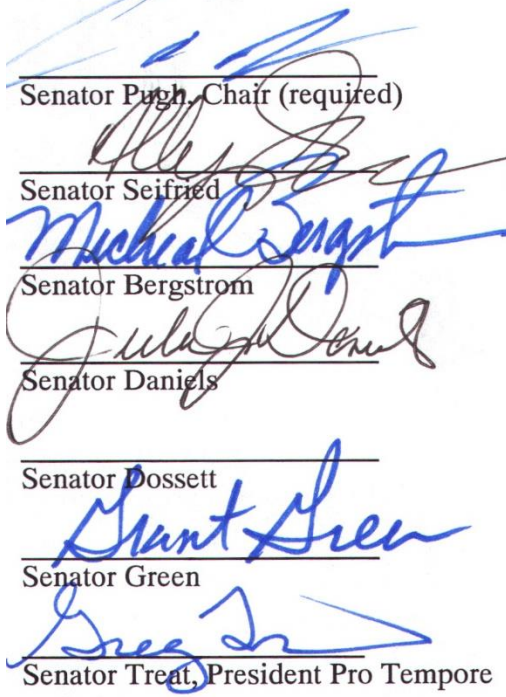 Senator Pugh, Chair (required)
Ally
Senator Seifried
Micheal Bergst
Senator Bergstrom
Julie Daniels
Senator Daniels
Senator Dossett
Grant Green
Senator Green
Greg
Senator Treat, President Pro Tempore